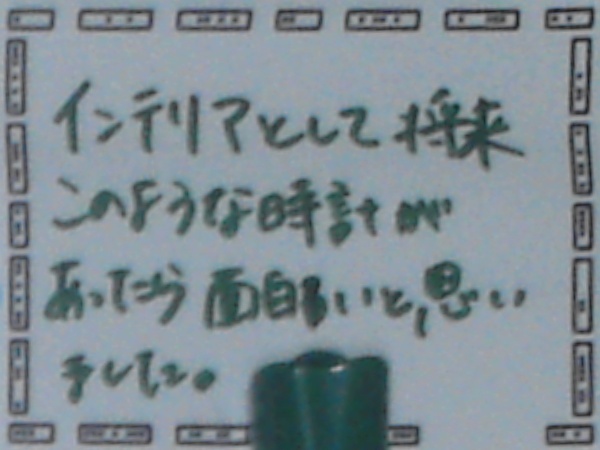 インテリアとして将来
このような時計が
あったら面白いと思い
ました。